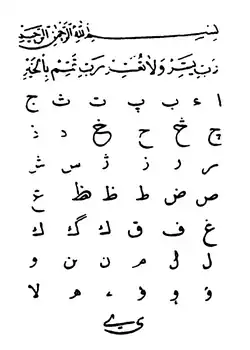 بسم الله الرحمن الرحيم
رب يسر ولا تعسر رب تمم بالخير
ا ء ب پ ت ث ج
چ څ ح خ د ذ
ر ر ز ژ س ش
ص ض ط ظ ظ ع
غ ف ق ك گ ك
ل م ن و
و و ء ه لا
ی ے